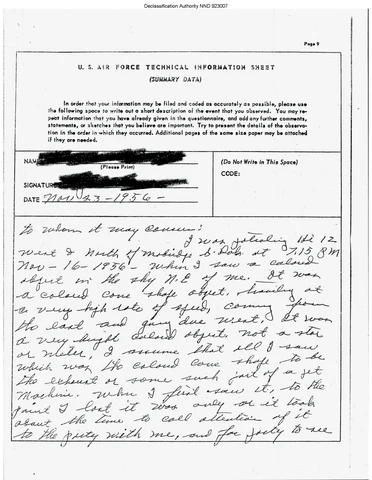 Declassification Authority NND 923007
Page 9
U. S. AIR FORCE TECHNICAL INFORMATION SHEET
(SUMMARY DATA)
In order that your information may be filed and coded as accurately as possible, please use
the following space to write out a short description of the event that you observed. You may re-
peat information that you have already given in the questionnaire, and add any further comments,
statements, or sketches that you believe are important. Try to present the details of the observa-
tion in the order in which they occurred. Additional pages of the same size paper may be attached
if they are needed.
NAME
(Please Print)
(Do Not Write in This Space)
CODE:
SIGNATURE
DATE Nov 23-1956-
To whom it may concern:
I was patroling Hi 12
west & North of Mobridge S. Dak at 7.15 PM
Nov-16-1956- when I saw a colored
object in the sky N.E of me. It was
a colored cone shape object, traveling at
a very high rate of speed, coming from
the east and going due west, It was
a very bright colored object. not a star
or meter, I assume that all I saw
which was the colored cone shape to be
the exhaust or some such part of a jet
machine. When I first saw it, to the
point I lost it was only as it took
about the time to call attention of it
to the party with me, and for party to see